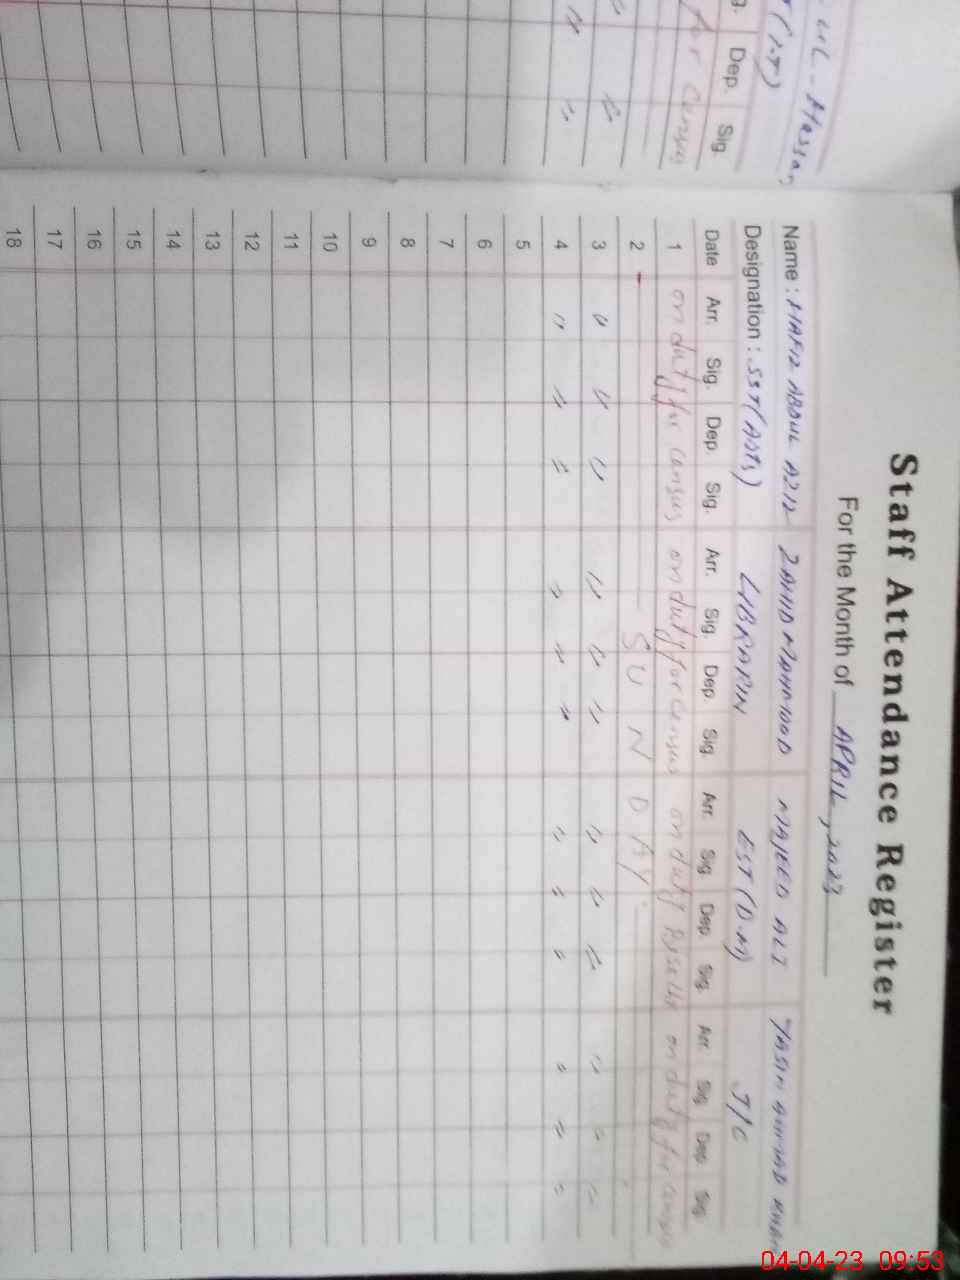 Staff Attendance Register
For the Month of APRIL, 2023
Name : HAFIZ ABDUL AZIZ ZAHID MAHMOOD MAJEED ALI YASIN KHAN
Designation : SST(Arts) LIBRARIN EST (D.M) J/C
Date Arr. Sig. Dep. Sig. Arr. Sig. Dep. Sig. Arr. Sig. Dep. Sig. Arr. Sig. Dep. Sig.
1 on duty for census on duty for census on duty on duty for census
2 SUNDAY.
3 " " " " " " " " " " " "
4 " " " " " " " " " " " "
5
6
7
8
9
10
11
12
13
14
15
16
17
18
(I.T)
Dep. Sig.
for census
" "
" "
04-04-23 09:53